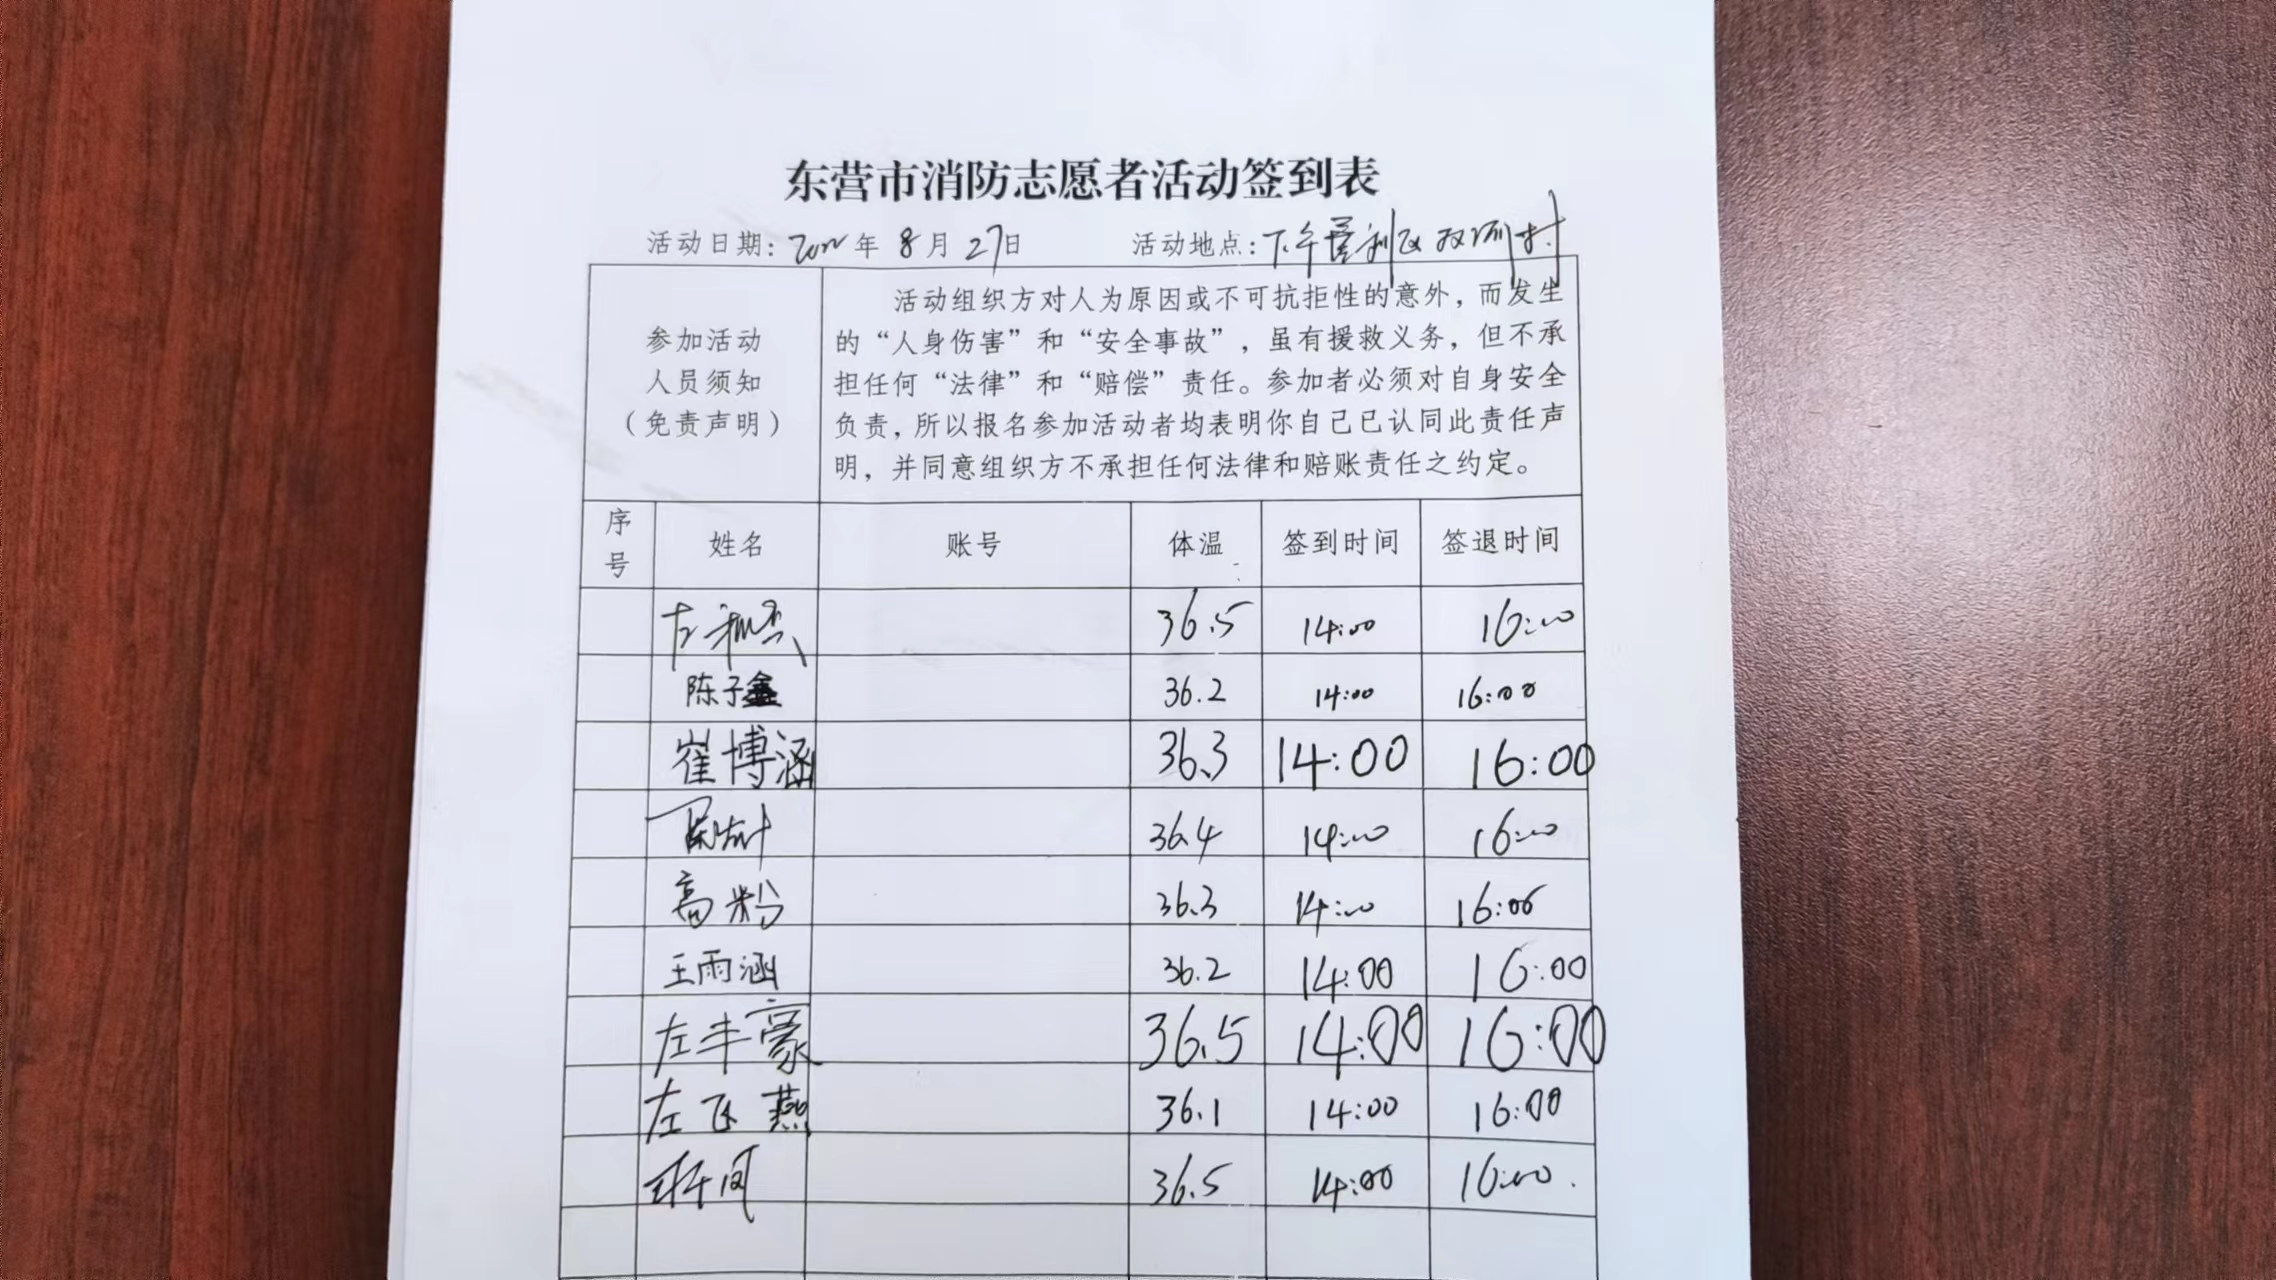 东营市消防志愿者活动签到表
活动日期:2022年8月27日 活动地点:
参加活动
人员须知
(免责声明)
活动组织方对人为原因或不可抗拒性的意外,而发生
的“人身伤害”和“安全事故”,虽有援救义务,但不承
担任何“法律”和“赔偿”责任。参加者必须对自身安全
负责,所以报名参加活动者均表明你自己已认同此责任声
明,并同意组织方不承担任何法律和赔账责任之约定。
序号 姓名 账号 体温 签到时间 签退时间
36.5 14:00 16:00
陈子鑫 36.2 14:00 16:00
崔博涵 36.3 14:00 16:00
36.4 14:00 16:00
高粉 36.3 14:00 16:00
王雨涵 36.2 14:00 16:00
左丰豪 36.5 14:00 16:00
左飞燕 36.1 14:00 16:00
36.5 14:00 16:00